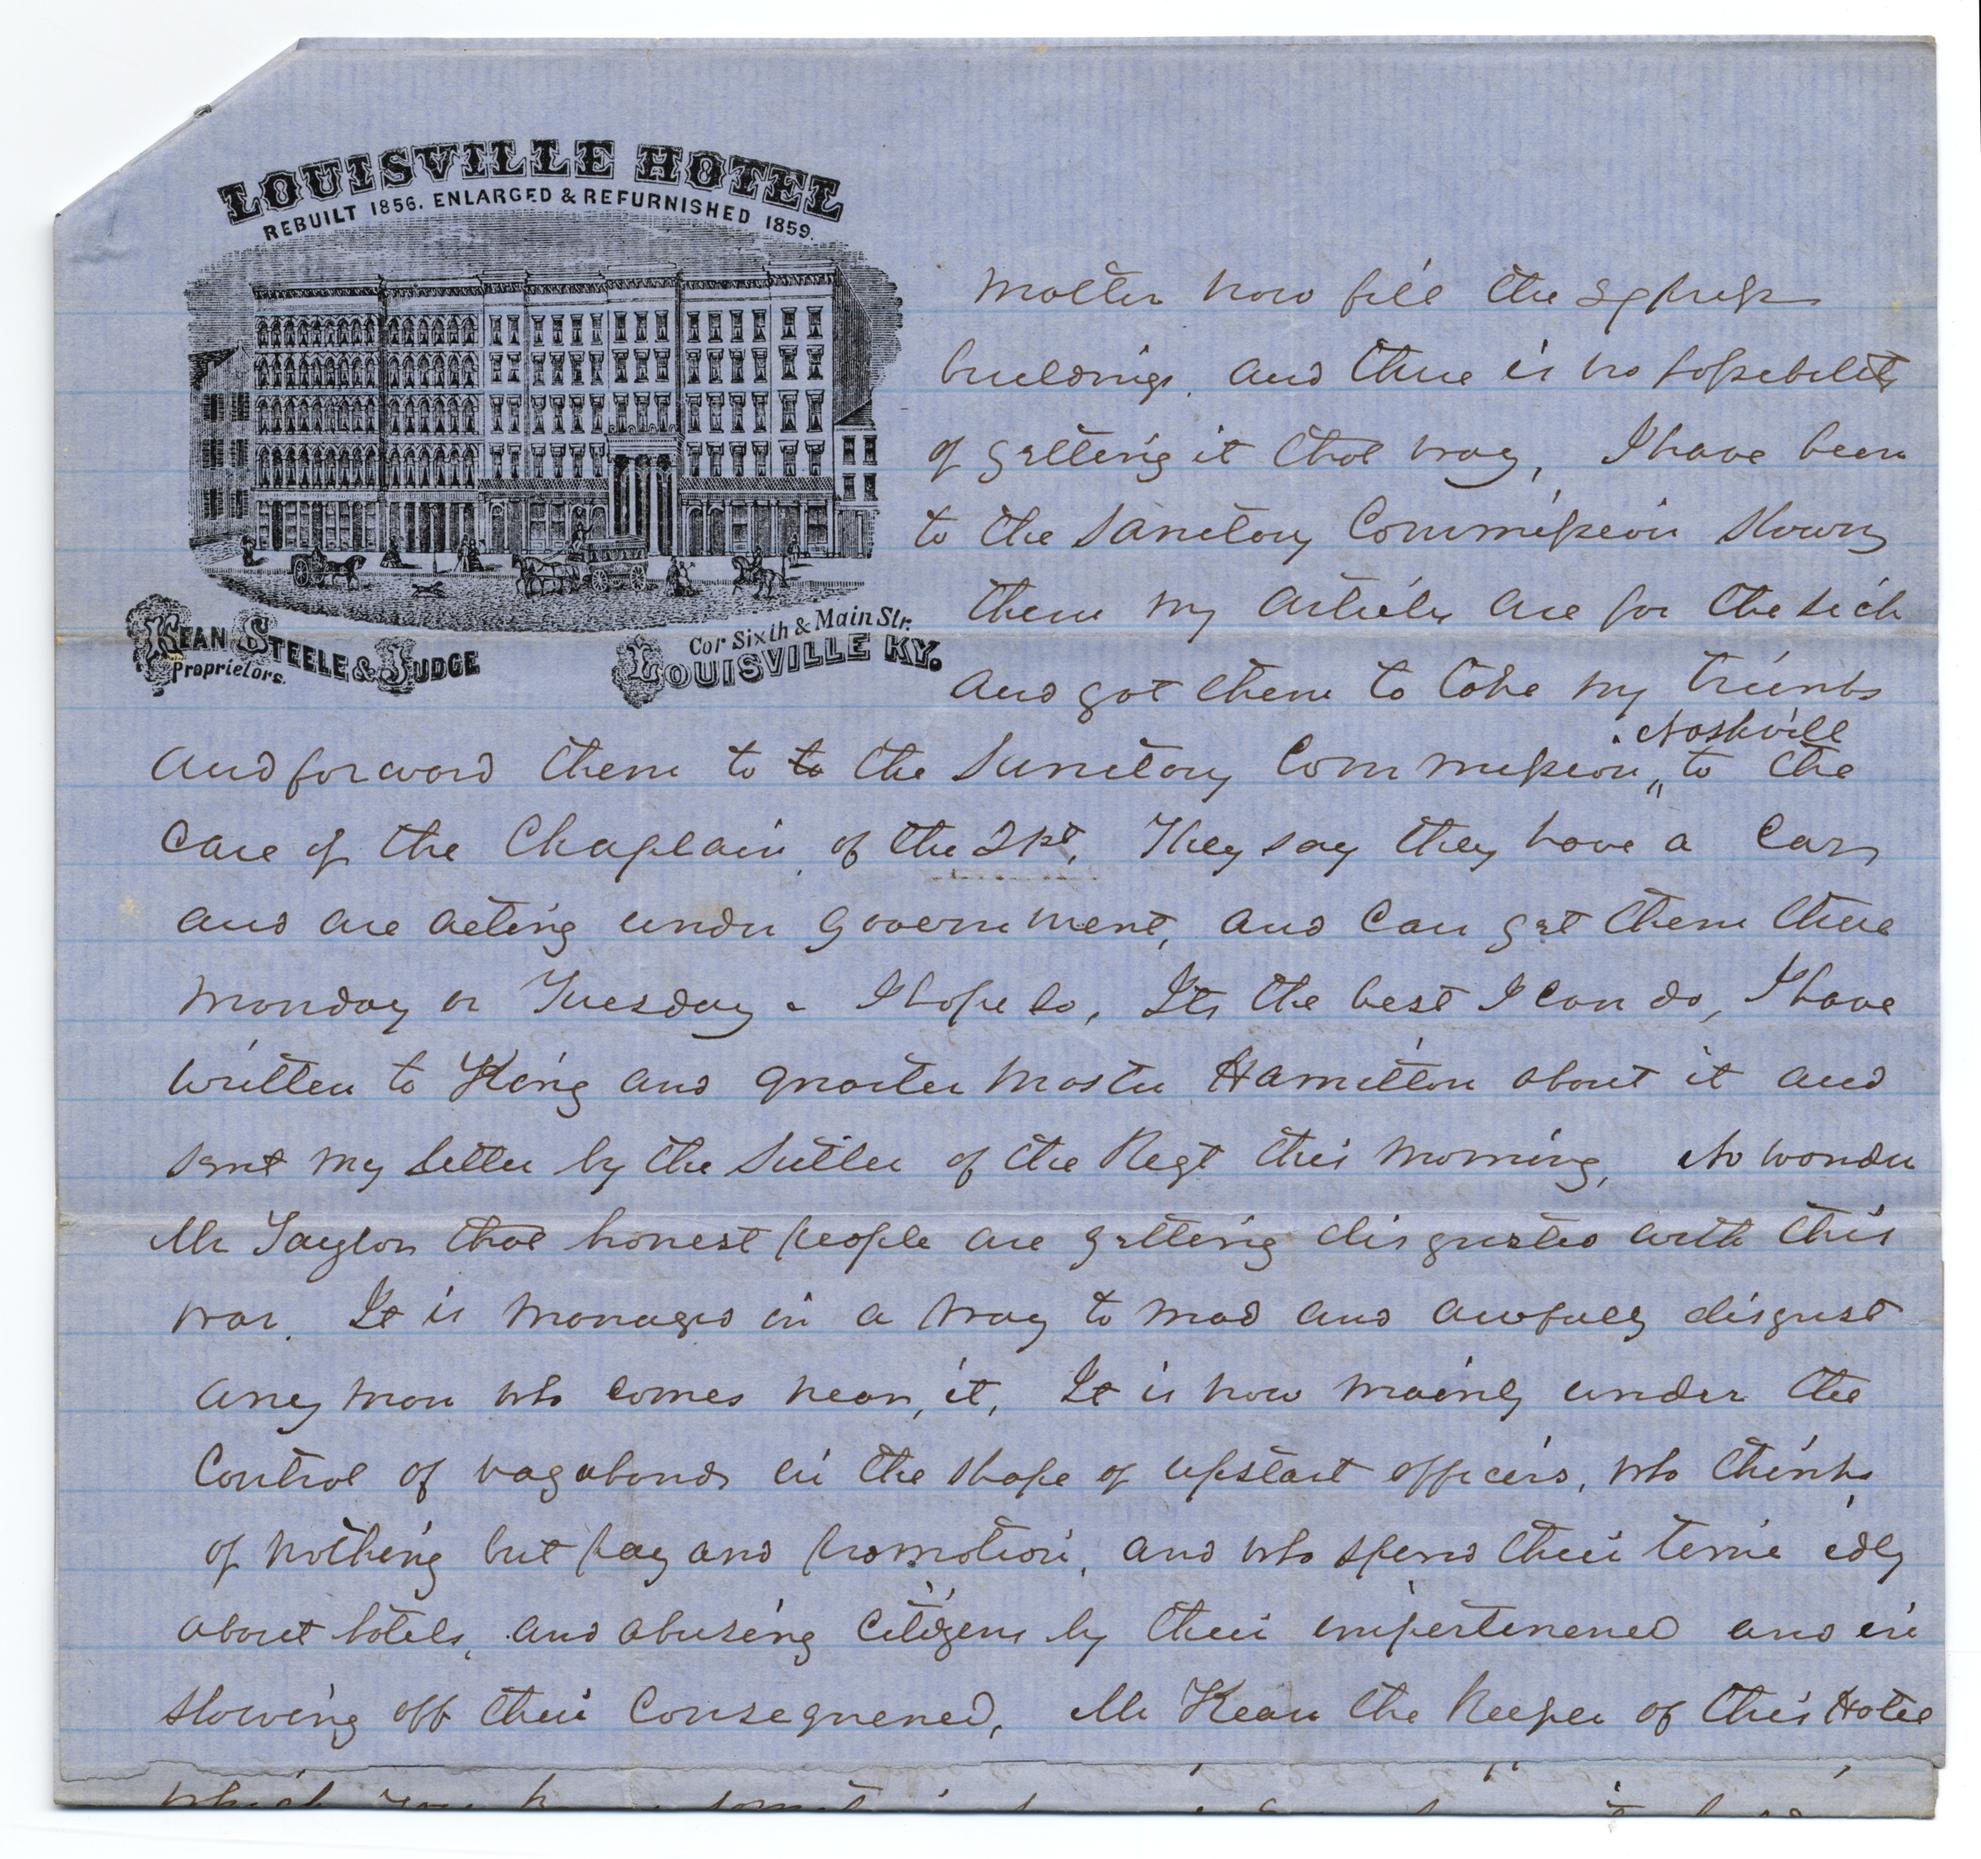 LOUISVILLE HOTEL
REBUILT 1856. ENLARGED & REFURNISHED 1859.
KEAN STEELE & JUDGE
Proprietors.
Cor Sixth & Main Str.
LOUISVILLE KY.
Matter now fill the Express
buildings, and there is no possibility
of getting it that way, I have been
to the Sanitary Commission Shown
them my articles are for the sick
and got them to take my trunks
and forward them to to the Sanitary Commission, Nashvill to the
Care of the Chaplain, of the 21st, They say they have a Cars
and are acting under government, and can get them there
Monday or Tuesday - I hope so, Its the best I can do, I have
written to King and quarter master Hamilton about it and
sent my letter by the Sutler of the Regt this morning, No wonder
Mr Taylor that honest people are getting disgusted with this
war. It is managed in a way to mad and awfully disgust
any man who comes near, it, It is now mainly under the
Control of vagabonds in the shape of upstart officers, who think
of nothing but pay and promotion, and who spend their time idly
about hotels, and abusing Citizens by their impertinence and in
showing off their Consequence, Mr Kean the Keeper of this Hotel
which you